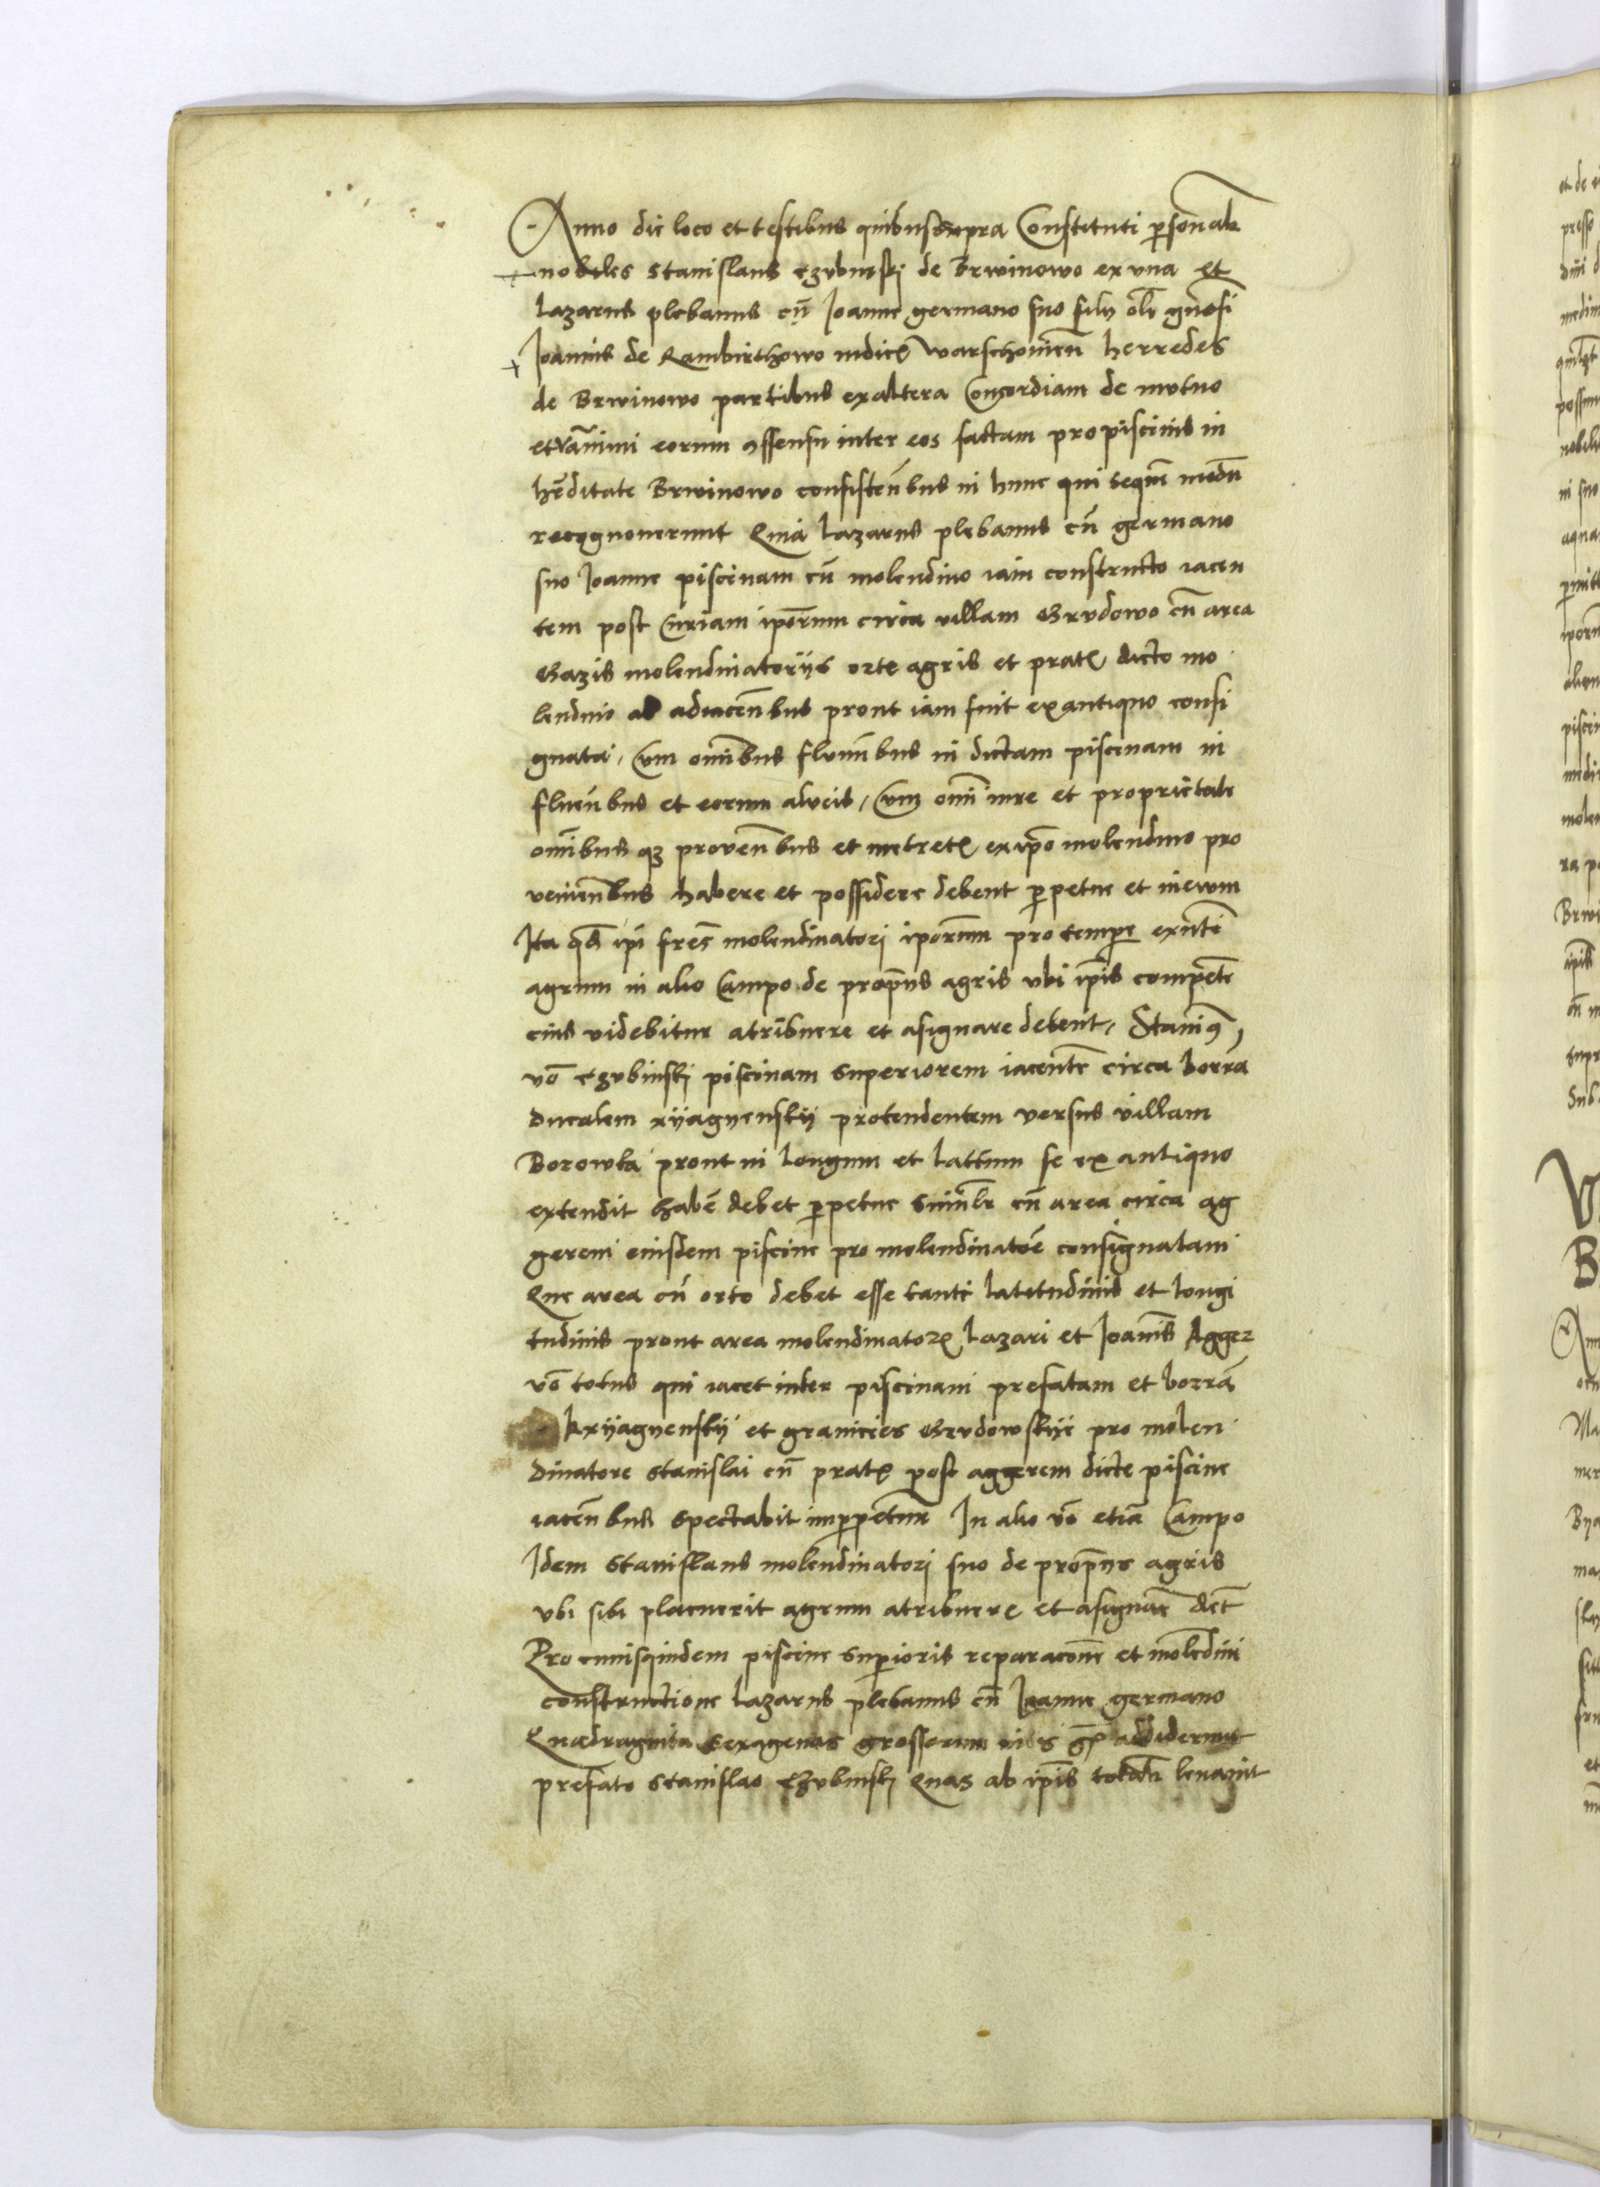 Anno die loco et testibus quibus supra Constituti personalr
nobiles Stanislaus Czvbinski de Brwinowo ex vna et
Lazarus plebanus cũ Joanne germano suo filij olĩ gñosi
Joannis de Rambirthowo iudicis Warschouien̄ herredes
de Brwinowo partibus ex altera Concordiam de mutuo
et vnanimi eorum ꝯssensu inter eos factam pro piscinis in
hr̄editate Brwinowo consisten̄bus in hunc qui sequit̄ modũ
recognouerunt Quia Lazarus plebanus cũ germano
suo Joanne piscinam cũ molendino iam constructo iacen
tem post Curiam ipõrum circa villam Grvdowo cũ area
Gazis molendinatoriis orte agris et prat dicto mo
lendino adiacen̄bus prout iam fuit ex antiquo consi
gnata, Cum omĩbus fluuĩbus in dictam piscinam in
fluen̄bus et eorum alveis, Cum omĩ iure et proprietate
omĩbus qz proven̄bus et metret ex ip̄o molendino pro
venien̄bus habere et possidere debent perpetue et in ewm
Ita qd̄ ip̄i fr̄es molendinatori ipõrum pro tempore exn̄ti
agrum in alio Campo de prop̄iis agris vbi ip̄is compete
cius videbitur atribuere et asignare debent, Stanis
vō Czvbinski piscinam superiorem iacente circa borra
ducalem xyagyenskij protendentem versus villam
Borowla prout in longum et lattum se ex antiquo
extendit habē debet perpetue Similr cũ area circa ag
gerem eiusdem piscine pro molendinatoē consignatam
Que area cũ orto debet esse tante latitudinis et longi
tudinis prout area molendinator Lazari et Joannis Agger
vō totus qui iacet inter piscinam prefatam et borrā
kxyagyenskij et granicies Grvdowskye pro molen
dinatore Stanislai cũ prat post aggerem dicte piscine
iacen̄bus spectabit imperpetuum In alio vō etiā Campo
Idem Stanislaus molendinatori suo de prop̄iis agris
vbi sibi placuerit agrum atribuere et asignare deb̄t
Pro cuiusquidem piscine superioris reparacone et molēdini
constructione Lazarus plebanus cũ Joanne germano
Quadraginta Sexagenas grossorum addiderunt
prefato Stanislao Czvbinski Quas ab ip̄is totalr̄ leuauit